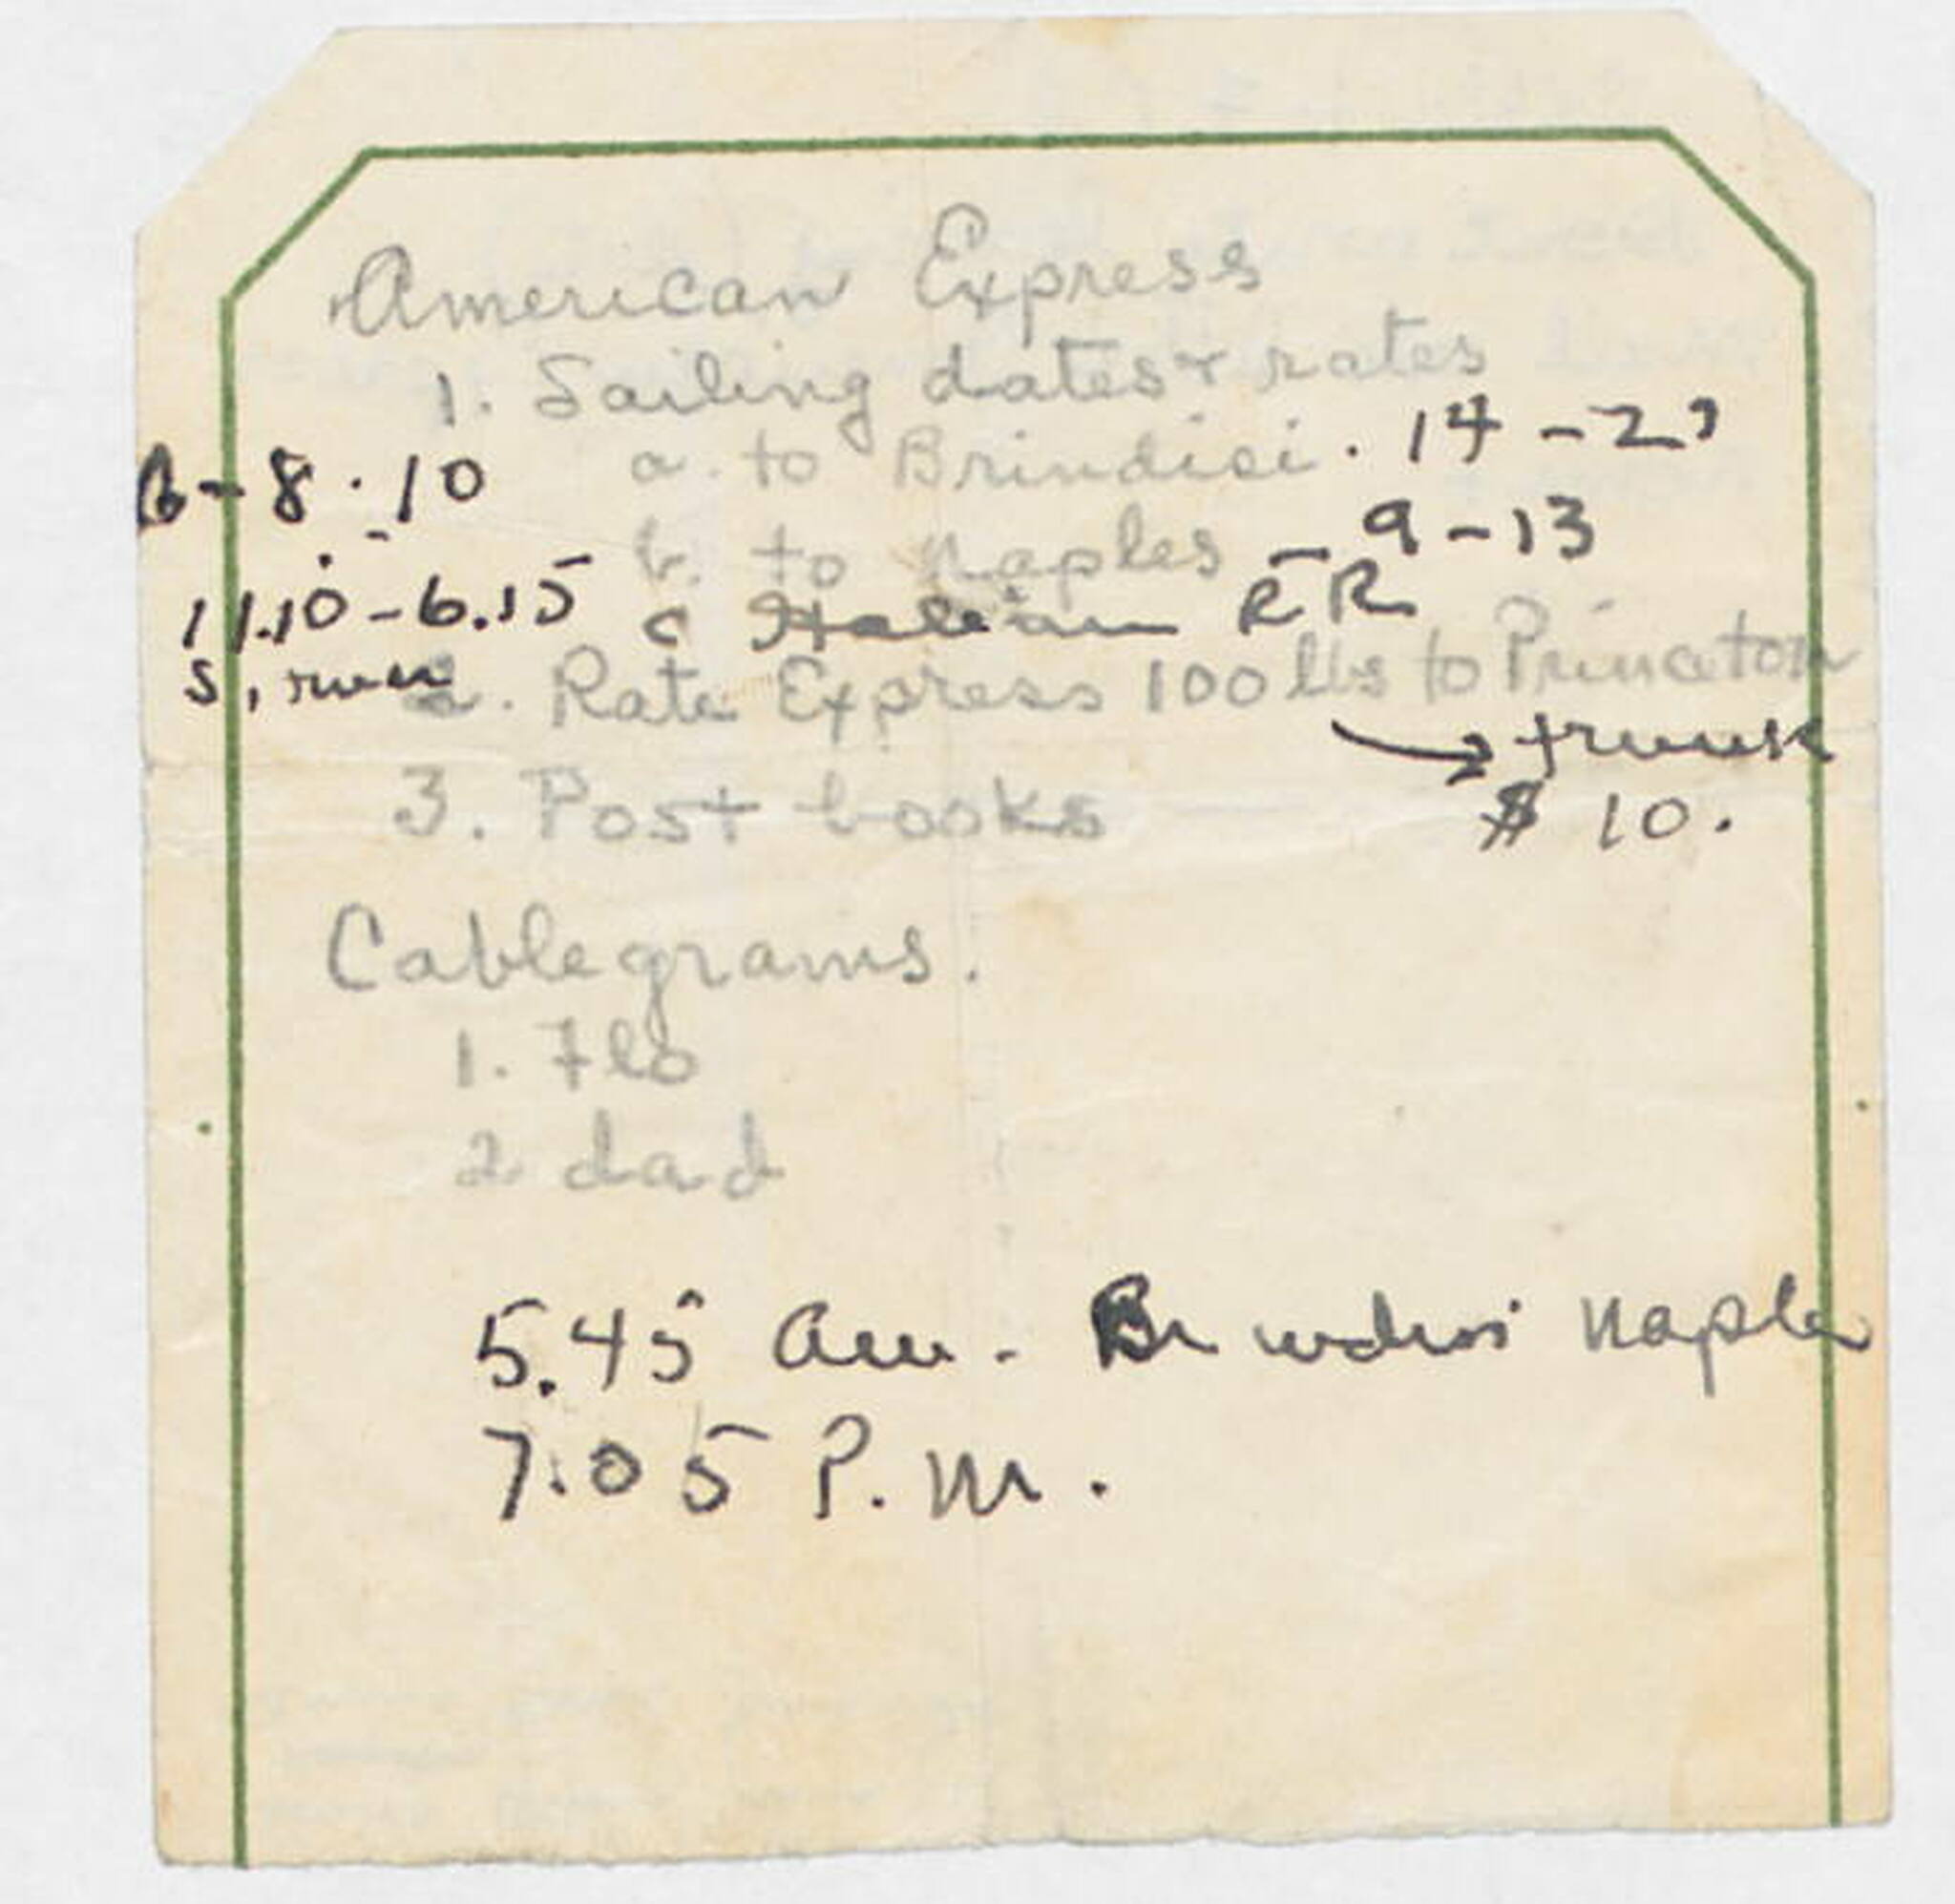 American Express
1. Sailing dates & rates
a. to Brindisi. 14 - 2
B - 8.10
b. to Naples - 9 - 13
11.10 - 6.15
c Italian RR
S.
2. Rate Express 100 lbs to Princeton
→ trunk
3. Post books
$ 10.
Cablegrams.
1. Flo
2 dad
5.45 am - Brindisi Naples
7.05 P.M.